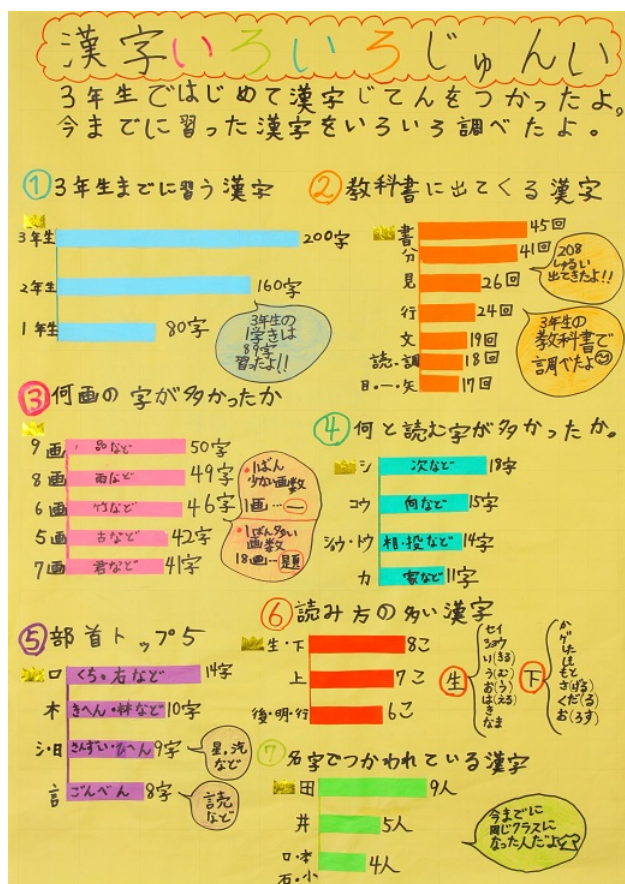 漢字いろいろじゅんい
3年生ではじめて漢字じてんをつかったよ。
今までに習った漢字をいろいろ調べたよ。
①3年生までに習う漢字
3年生 200字
2年生 160字
1年生 80字
3年生の
1学きは
89字
習ったよ!!
②教科書に出てくる漢字
書 45回
分 41回
見 26回
行 24回
文 19回
読・調 18回
日・一・矢 17回
208
しゅるい
出てきたよ!!
3年生の
教科書で
調べたよ
③何画の字が多かったか
9画 品など 50字
8画 雨など 49字
6画 竹など 46字
5画 古など 42字
7画 君など 41字
・1ばん
少ない画数
1画…一
・1ばん多い
画数
18画…題
④何と読む字が多かったか。
シ 次など 18字
コウ 向など 15字
ショウ・トウ 相・投など 14字
カ 家など 11字
⑤部首トップ5
口 くち。右など 14字
木 きへん・林など 10字
シ・日 さんずい・ひへん 9字
言 ごんべん 8字
星。汽
など
読
など
⑥読み方の多い漢字
生・下 8こ
上 7こ
後・明・行 6こ
生
セイ
ショウ
い(きる)
う(む)
お(う)
は(える)
き
なま
下
か
ゲ
した
しも
もと
さ(げる)
くだ(る)
お(ろす)
⑦名字でつかわれている漢字
田 9人
井 5人
口・本
石・小 4人
今までに
同じクラスに
なった人だよ